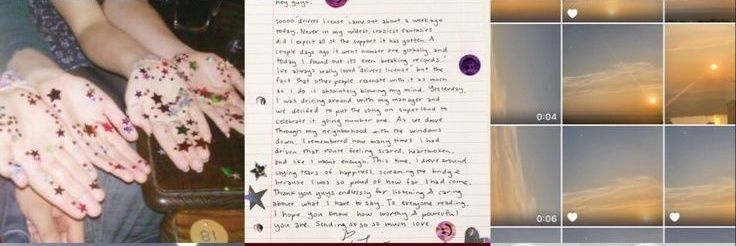 hey guys.
soooo "drivers license" came out about a week ago
today. Never in my wildest, craziest fantasies
did I expect all of the support it has gotten. A
couple days ago it went number one globally and
today I found out its even breaking records.
I've always really loved "drivers license" but the
fact that other people resonate with it as much
as I do is absolutely blowing my mind. Yesterday,
I was driving around with my manager and
we decided to put the song on super loud to
celebrate it going number one. As we drove
through my neighborhood with the windows
down, I remembered how many times I had
driven that route feeling scared, heartbroken,
and like I wasnt enough. This time, I drove around
crying tears of happiness, screaming the bridge
because I was so proud of how far I had come.
Thank you guys endlessly for listening & caring
about what I have to say. To everyone reading,
I hope you know how worthy & powerful
you are. Sending so so so much love.
81
0:04
0:06